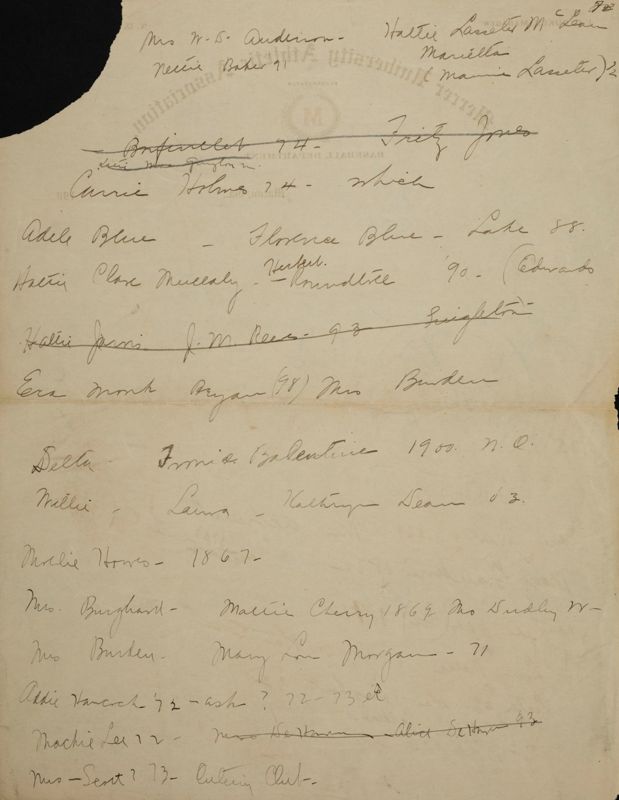 Mrs W. D. Anderson -
Nettie Baker 91
Hattie Lasseter McLean
Marietta
(Mamie Lasseter) 92
74 - Fritz Jones
Carrie Holmes 74 - which
Adele Blue - Florence Blue - Lake 88.
Hattie Clare Mullaly - Herbert. Roundtree '90 - (Edwards
Hattie Jarvis J. M. Rees - 93 Singleton
Era Monk Bryan (98) Mrs Burden
Delta Balentine 1900. N. O.
Willie - Laura - Kathryn Dean 03.
Mollie Howes - 1867 -
Mrs. Burghard - Mattie Cherry 1869 Mrs Dudley W -
Mrs Burden - Mary Lou Morgan - 71
Addie Hancock '72 - ask ? 72 - 73 et
Mackie Lee 72 - Alice 93
Mrs - Scott? 73 - Club -
Mercer University Athletic Association
M
BASEBALL DEPARTMENT